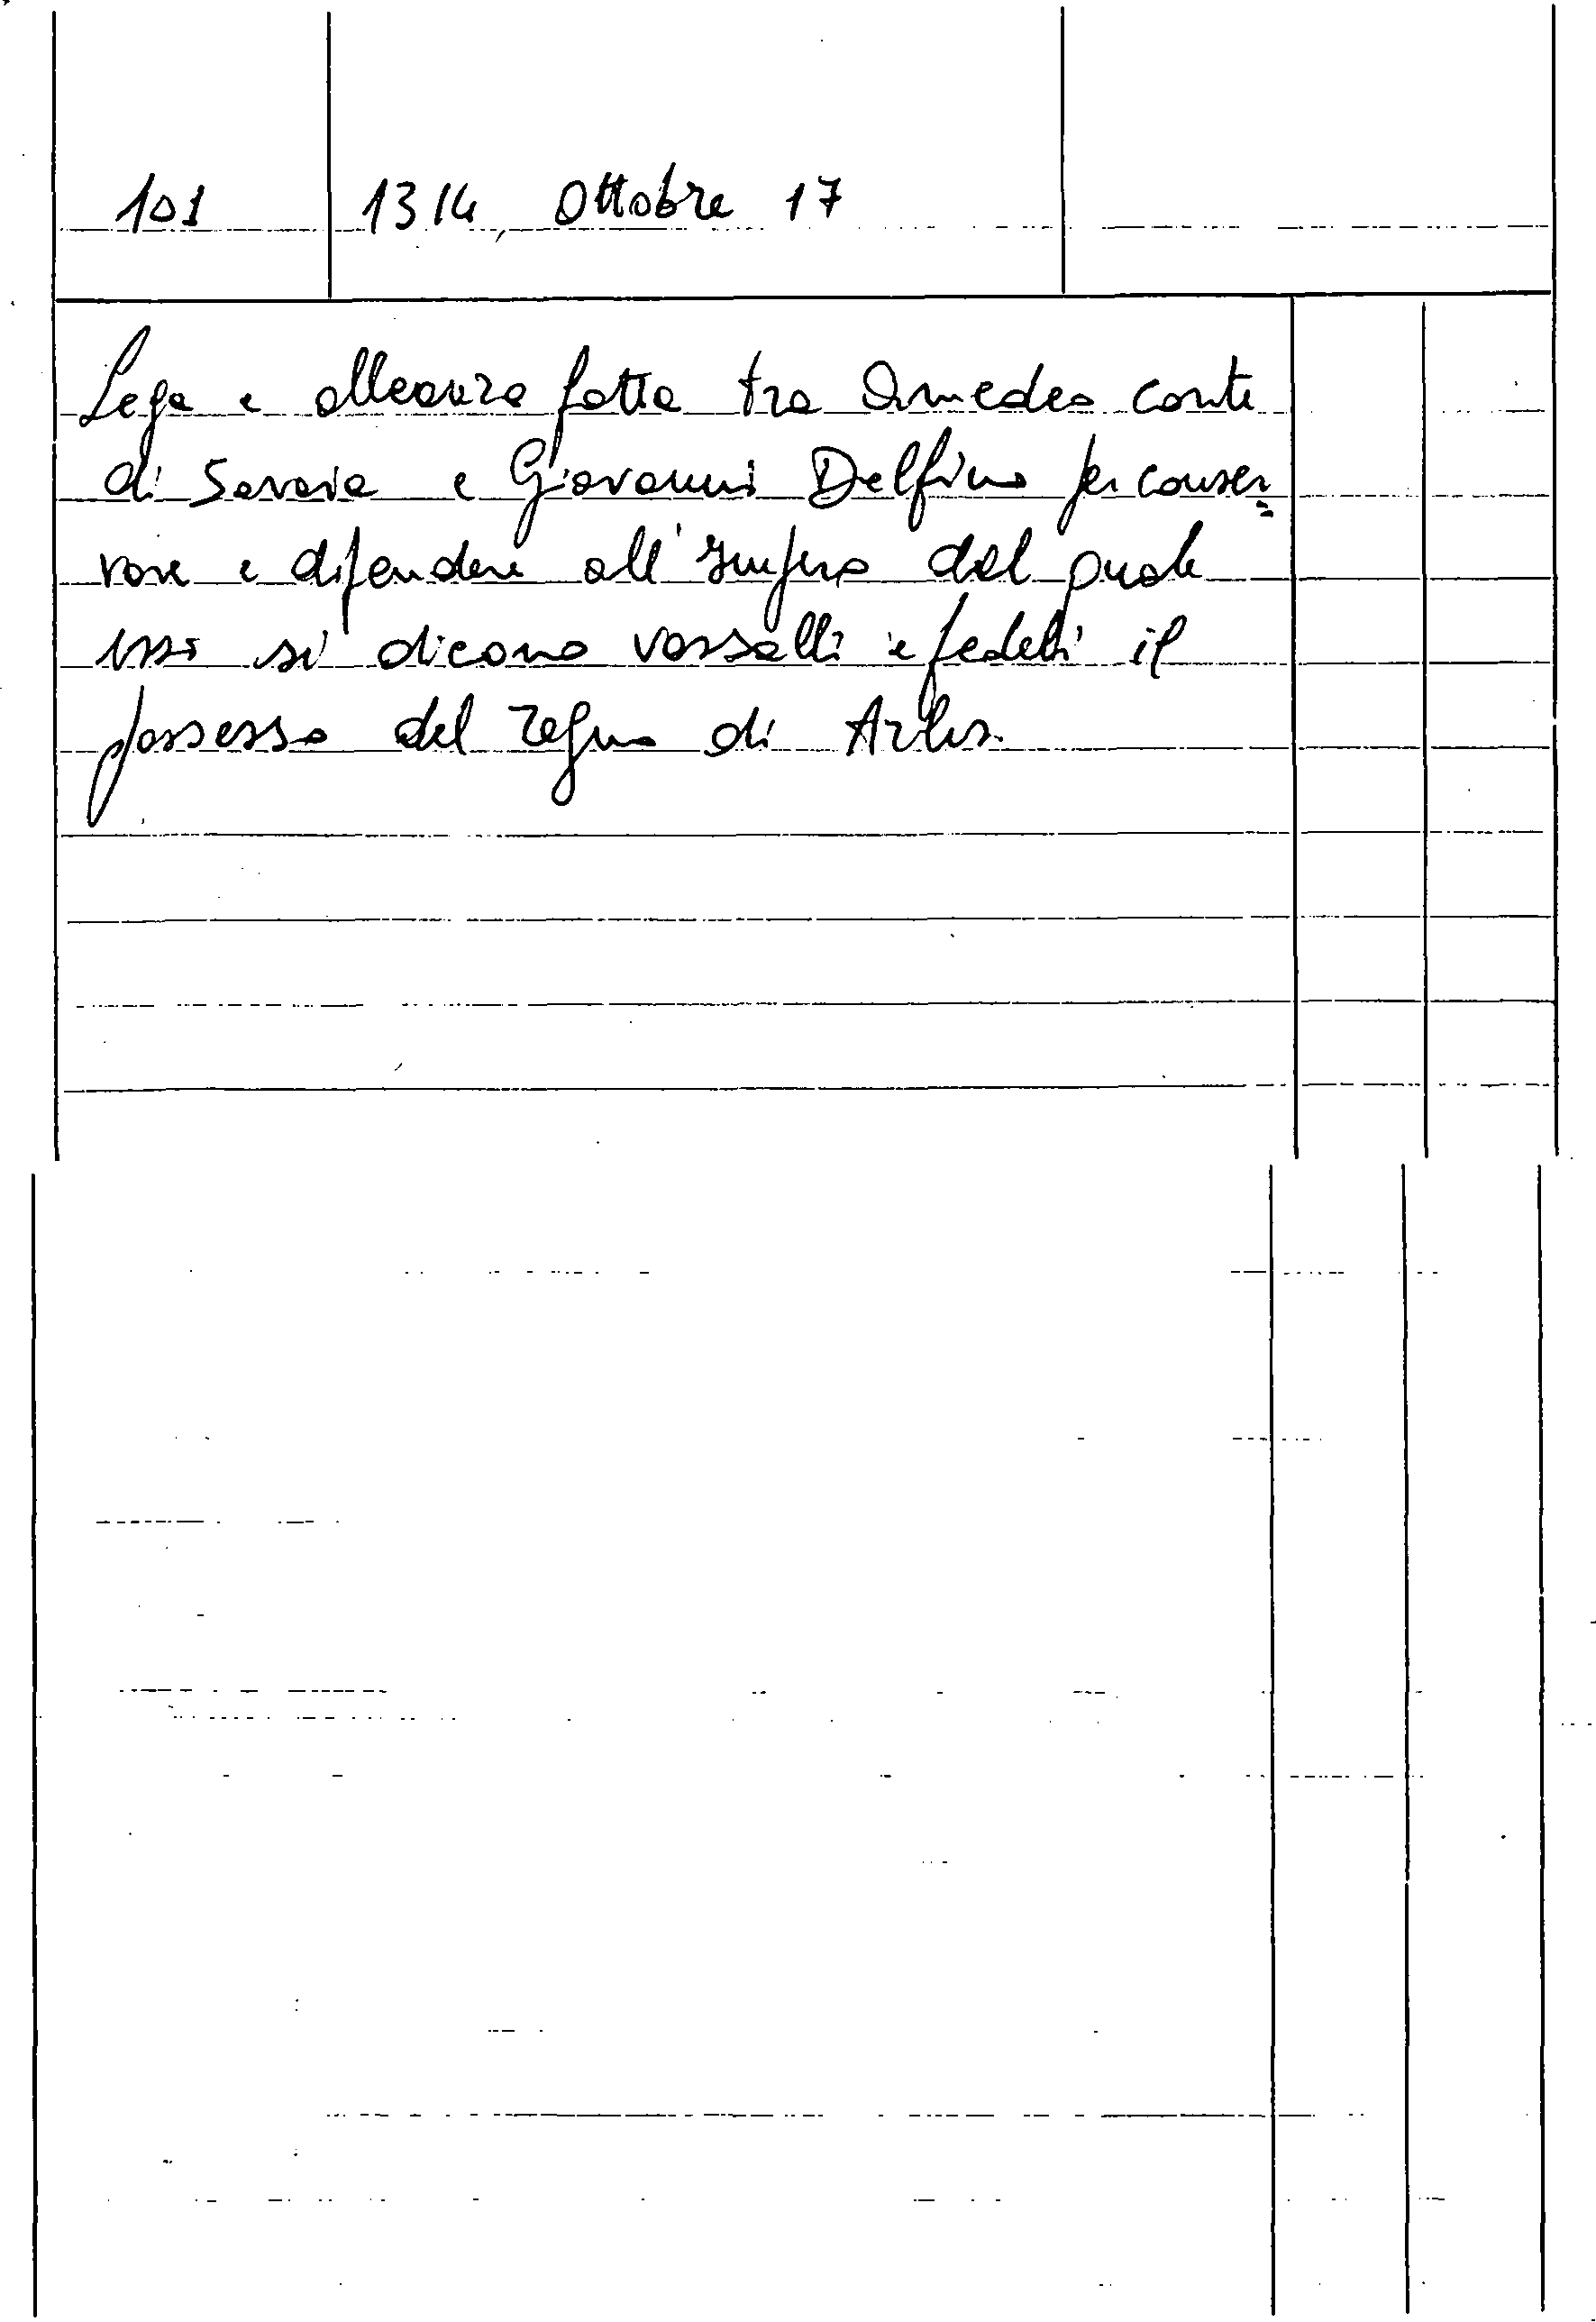 101 1314, Ottobre 17
Lega e alleanza fatta tra Amedeo conte
di Savoia e Giovanni Delfino per conser=
vare e difendere all'Impero del quale
essi si dicono vassalli e fedeli il
possesso del regno di Arles.